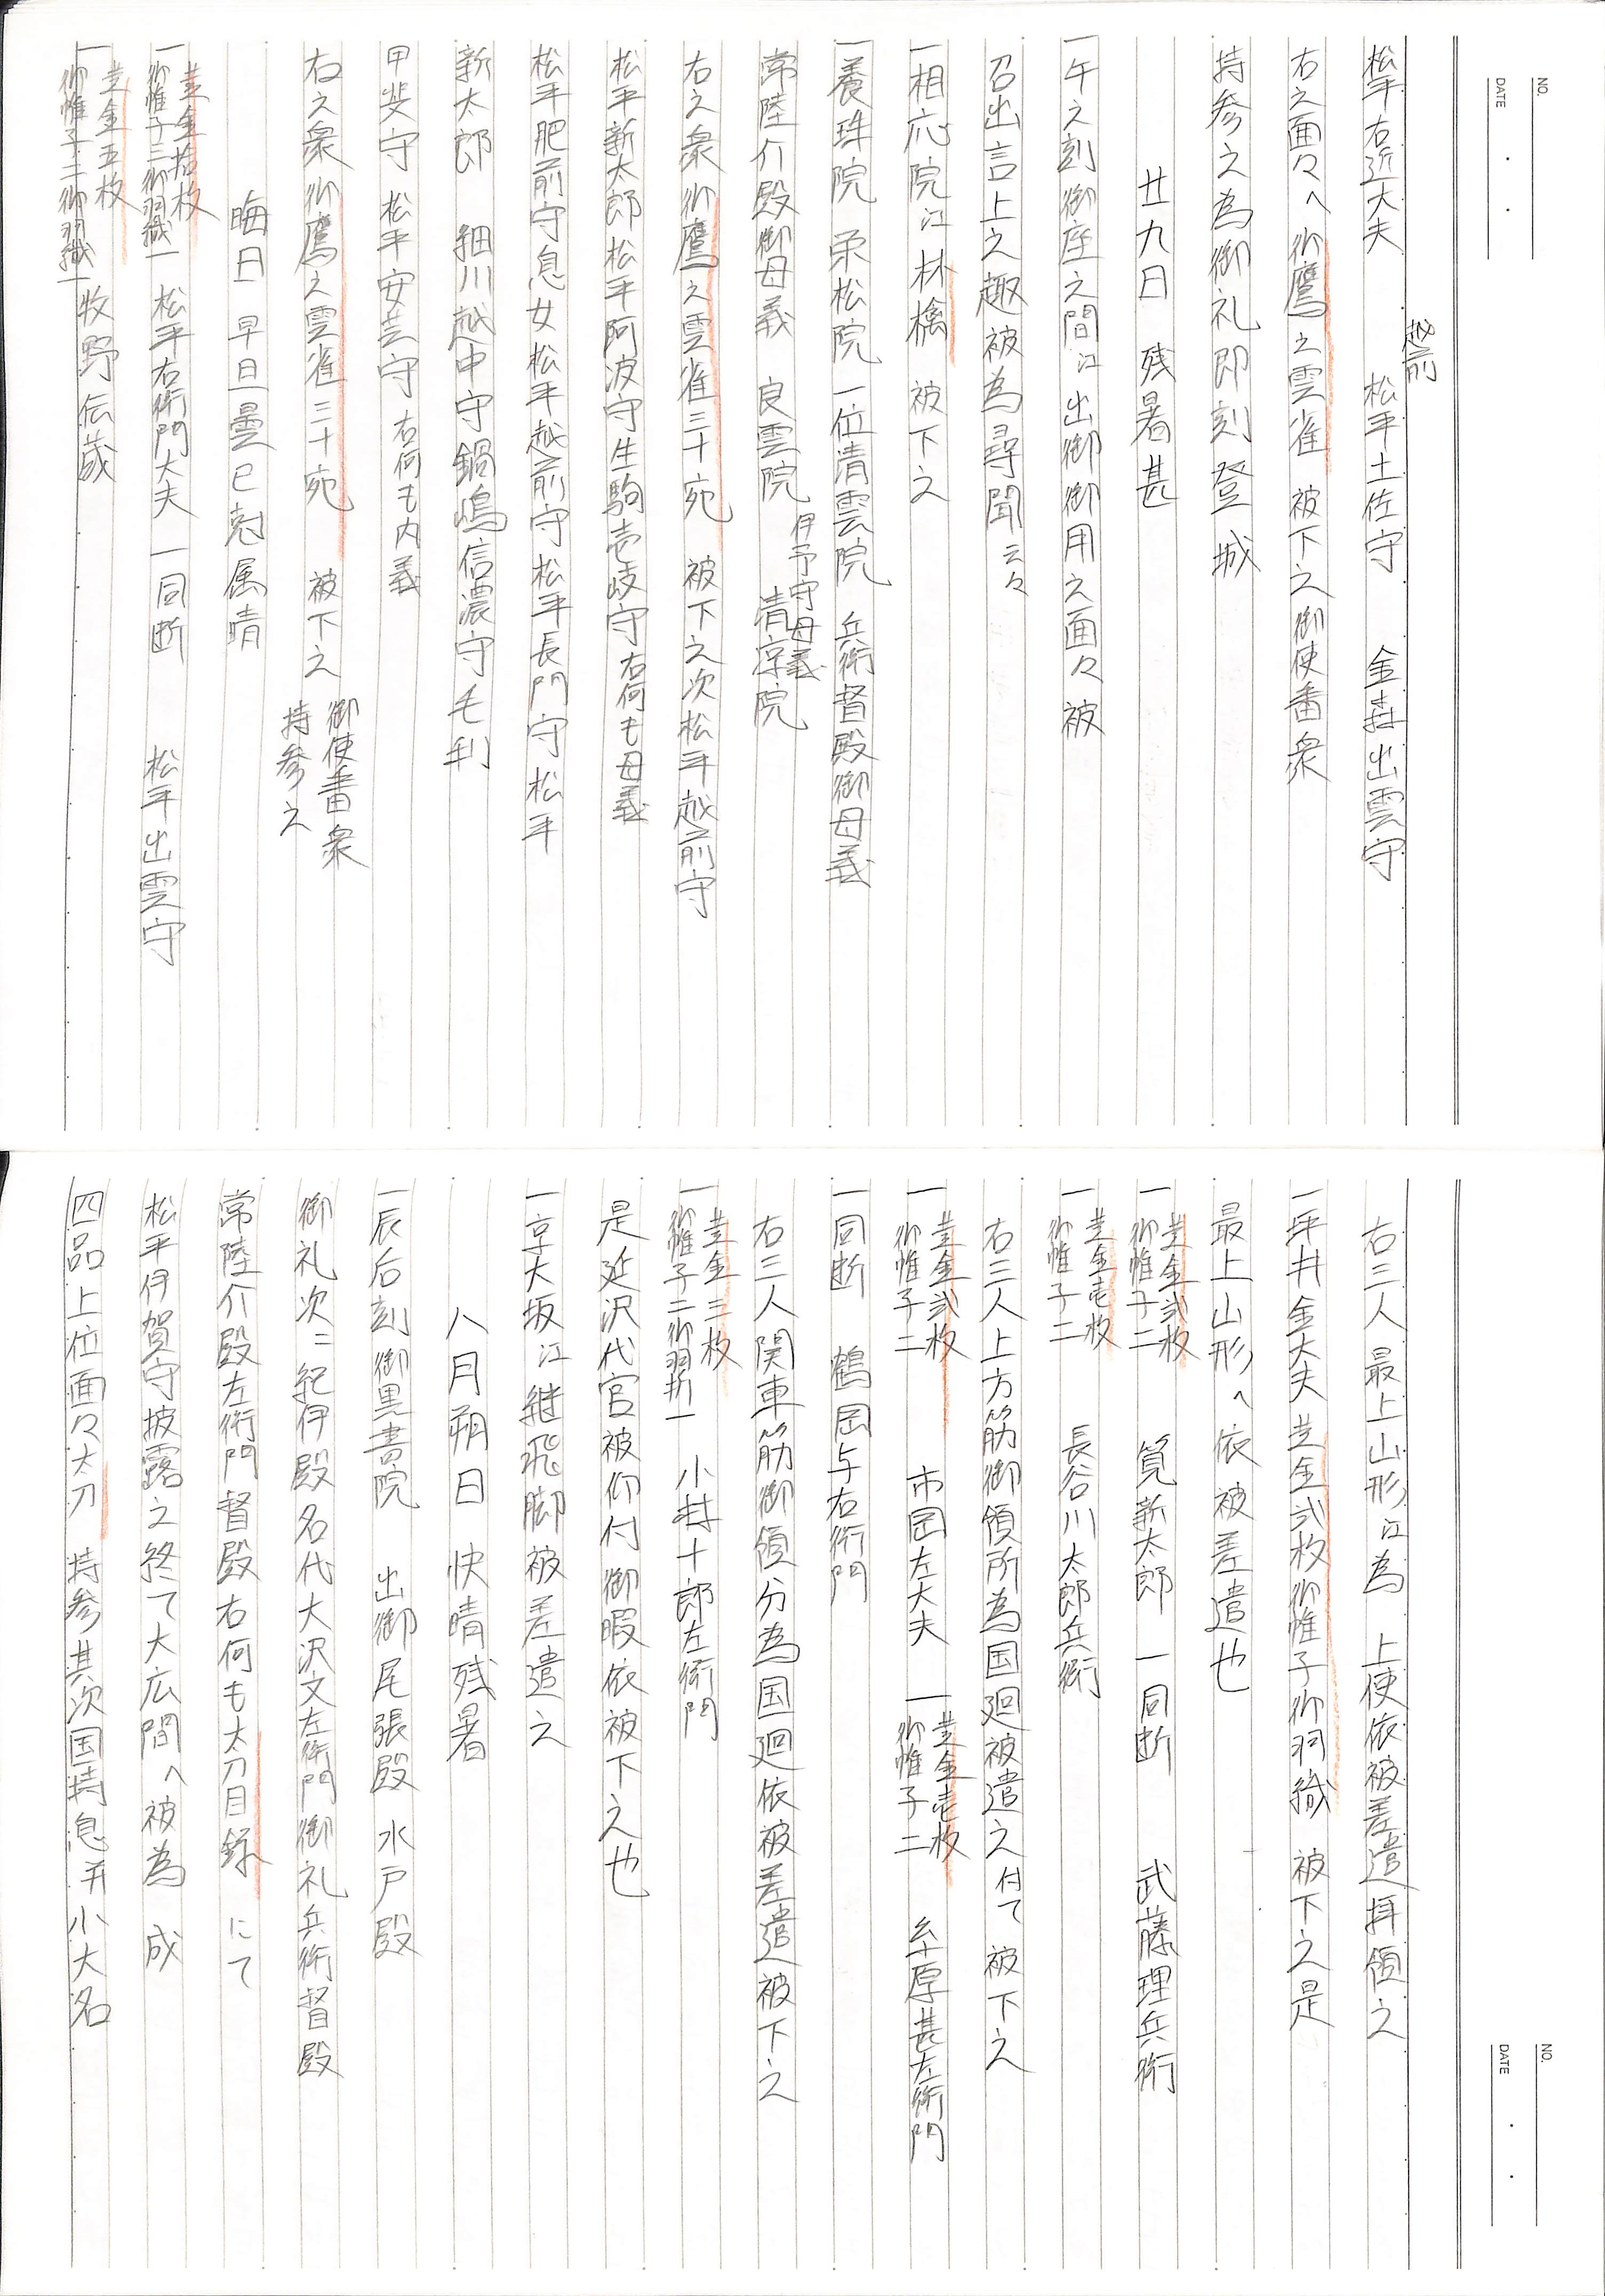 NO.
DATE
越前
松平右近大夫 松平土佐守 金森出雲守
右之面々へ御鷹之雲雀 被下之御使番衆
持参之為御礼即刻登城
廿九日 残暑甚
一午之刻御座之間江出御御用之面々被
召出言上之趣被為尋聞云々
一相応院江林檎 被下之
一養珠院 栄松院 一位清雲院 兵衛督殿御母義
常陸介殿御母義 良雲院 伊予守母義 清涼院
右之衆御鷹之雲雀三十宛 被下之次松平越前守
松平新太郎松平阿波守生駒壱岐守右何も母義
松平肥前守息女松平越前守松平長門守松平
新太郎 細川越中守鍋嶋信濃守毛利
甲斐守 松平安芸守 右何も内義
右之衆御鷹之雲雀三十宛 被下之 御使番衆
持参之
晦日 早旦曇巳尅属晴
一黄金拾枚
御帷子二御羽織一 松平右衛門大夫 一同断 松平出雲守
一黄金五枚
御帷子二御羽織一 牧野伝蔵
NO.
DATE
右三人最上山形江為 上使依被差遣拝領之
一坪井金大夫黄金弐枚御帷子御羽織 被下之是
最上山形へ依被差遣也
一黄金弐枚
御帷子二 筧新太郎 一同断 武藤理兵衛
一黄金壱枚
御帷子二 長谷川太郎兵衛
右三人上方筋御領所為国廻被遣之付て 被下之
一黄金弐枚
御帷子二 市岡左大夫 一黄金壱枚
御帷子二 糸原甚左衛門
一同断 鶴岡与右衛門
右三人関東筋御領分為国廻依被差遣被下之
一黄金三枚
御帷子二御羽折一 小林十郎左衛門
是延沢代官被仰付御暇依被下之也
一京大坂江継飛脚被差遣之
八月朔日 快晴残暑
一辰后刻御黒書院 出御尾張殿 水戸殿
御礼次ニ紀伊殿名代大沢文左衛門御礼兵衛督殿
常陸介殿左衛門督殿右何も太刀目録にて
松平伊賀守披露之終て大広間へ被為 成
四品上位面々太刀 持参其次国持息并小大名